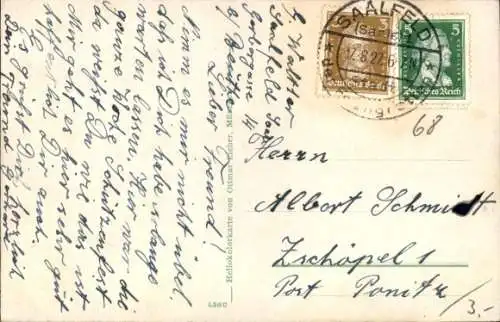 G. Walther
Saalfeld Saale
14
Lieber Freund!
Nimm es mir nicht übel,
daß ich Dich habe solange
warten lassen. Hier war die
ganze Woche Schützenfest
da weißt Du wie das ist
Mir geht es hier sehr gut
hoffentlich Dir auch.
Es grüßt Dich herzlich
Dein Freund
Hellokolorkarte von Ottmar Zieher, Mü
SAALFELD
(Saale)
12.8.27. 6-7 N
3
Deutsches Reich
5
5
Deutsches Reich
68
Herrn
Albert Schmidt
Zschöpel 1
Post Ponitz
3.-